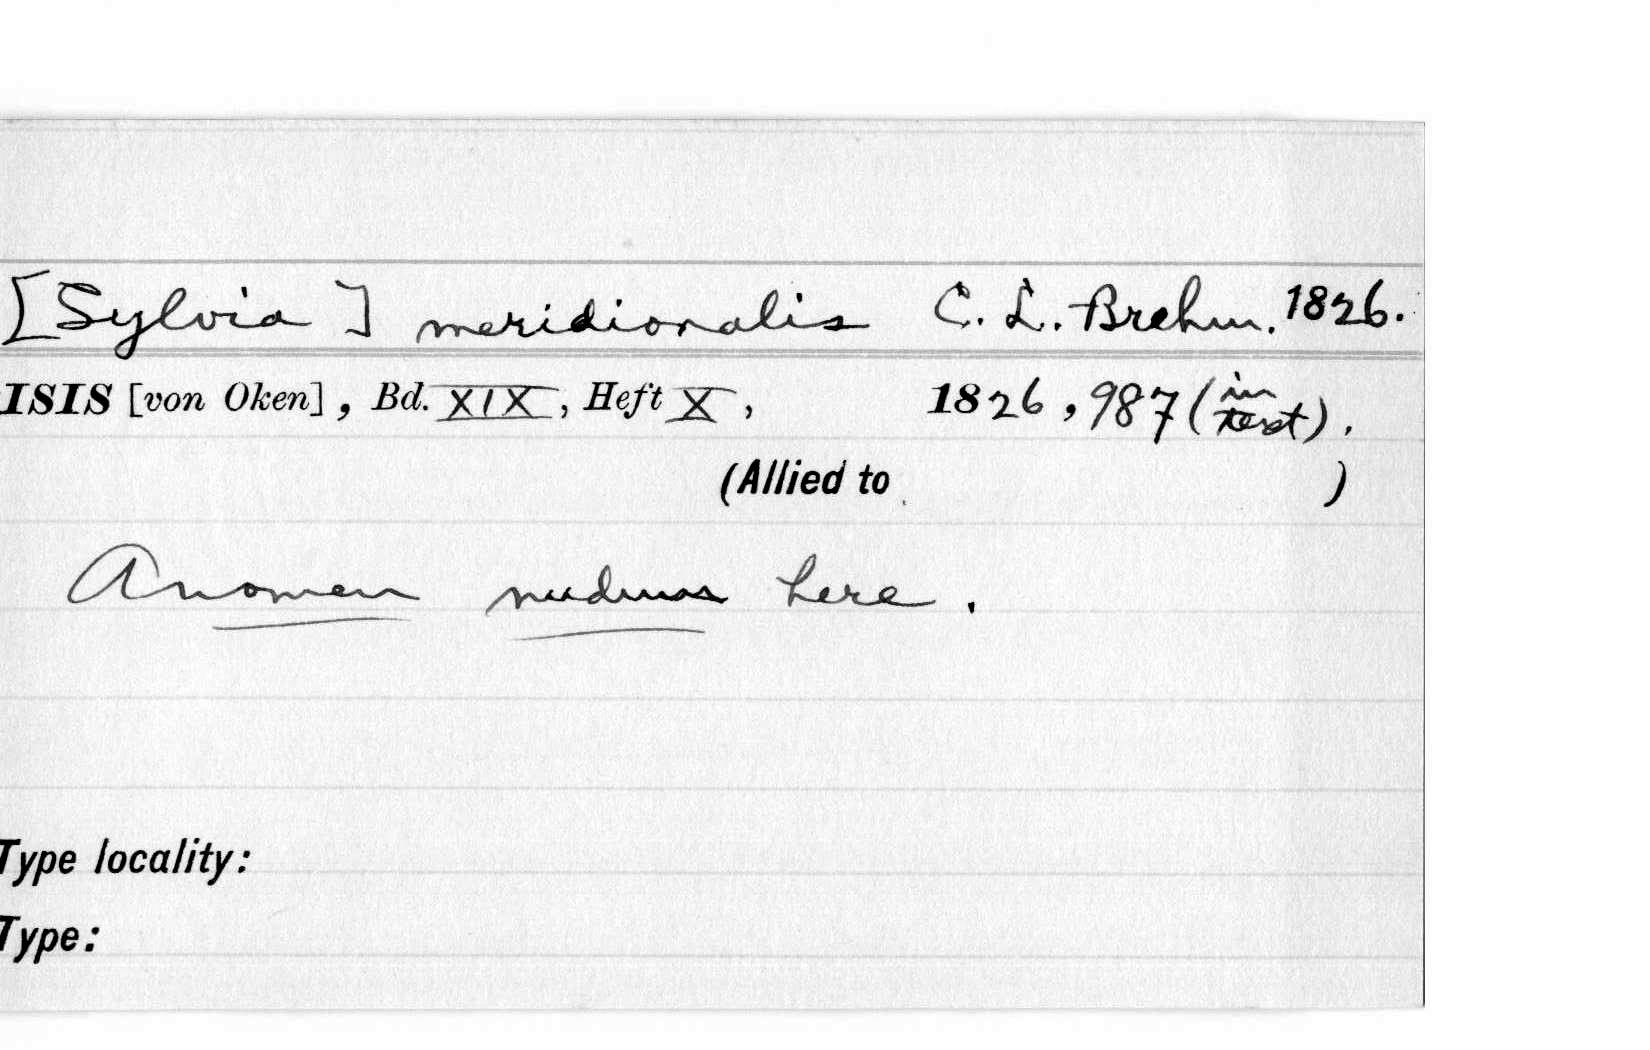 [Sylvia] meridionalis C. L. Brehm. 1826.
ISIS [von Oken], Bd. XIX, Heft X, 1826, 987 (in text).
(Allied to )
A nomen nudum here.
Type locality:
Type: